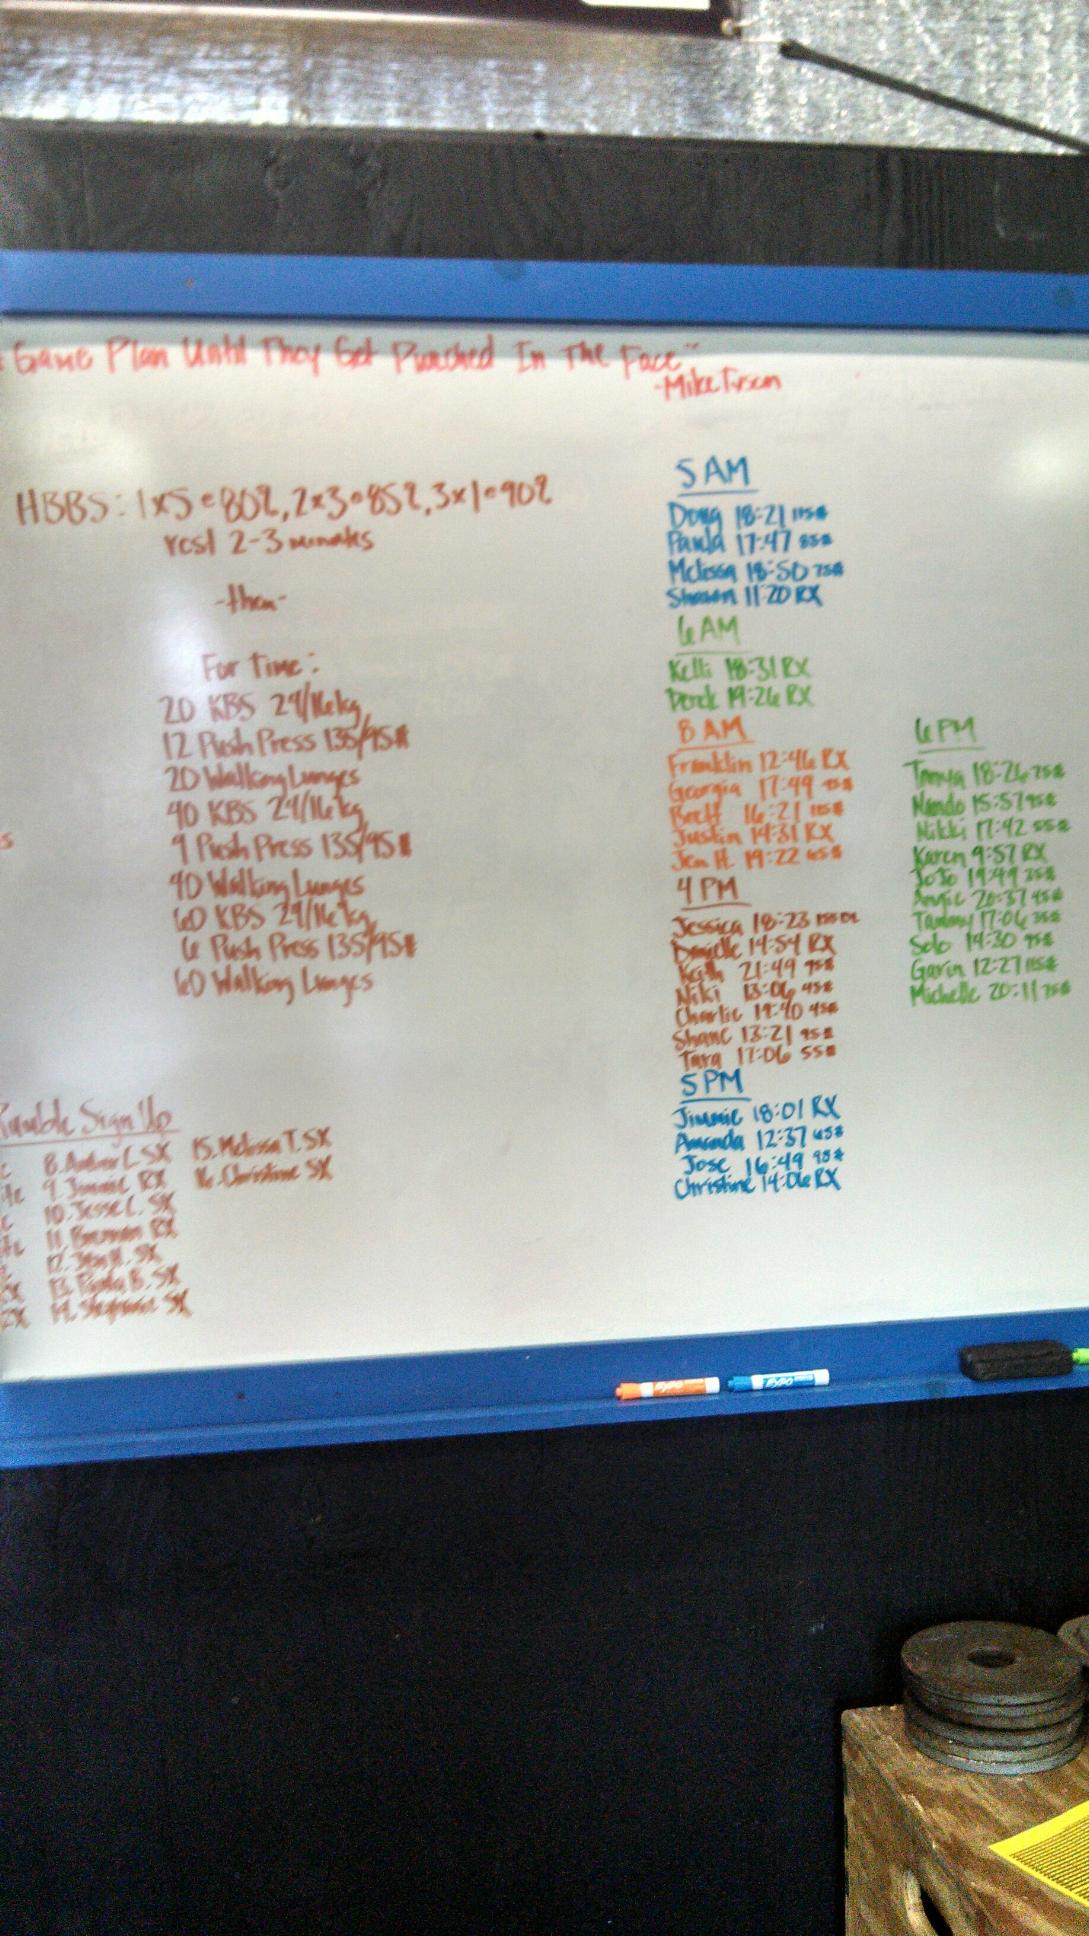 Game Plan Until They Get Punched In The Face"
-Mike Tyson
HBBS: 1x5@80%, 2x3@85%, 3x1@90%
rest 2-3 minutes
-then-
For Time:
20 KBS 24/16kg
12 Push Press 135/95#
20 Walking Lunges
40 KBS 24/16kg
9 Push Press 135/95#
40 Walking Lunges
60 KBS 24/16kg
6 Push Press 135/95#
60 Walking Lunges
Rumble Sign Up
8. Amber L. SX
9. Jimmie RX
10. Jesse L. SX
11. Brennan RX
12. Jen H. SX
13. Paula B. SX
14. Stephanie SX
15. Melissa T. SX
16. Christine SX
5 AM
Doug 18:21 115#
Paula 17:47 85#
Melissa 18:50 75#
Shawn 11:20 RX
6 AM
Kelli 18:31 RX
Derek 19:26 RX
8 AM
Franklin 12:46 RX
Georgia 17:49
Brett 16:21 115#
Justin 14:31 RX
Jen H. 19:22 65#
4 PM
Jessica 18:23
Danielle 14:54 RX
Keith 21:49 95#
Niki 13:06 45#
Charlie 19:40 45#
Shane 13:21 95#
Tara 17:06 55#
5 PM
Jimmie 18:01 RX
Amanda 12:37 65#
Jose 16:49 95#
Christine 14:06 RX
6 PM
Tanya 18:26 75#
Nando 15:57 95#
Nikki 17:42 55#
Karen 9:57 RX
JoJo 19:49 35#
Angie 20:37 45#
Tammy 17:06 35#
Solo 14:30 95#
Gavin 12:27 115#
Michelle 20:11 75#
EXPO
EXPO